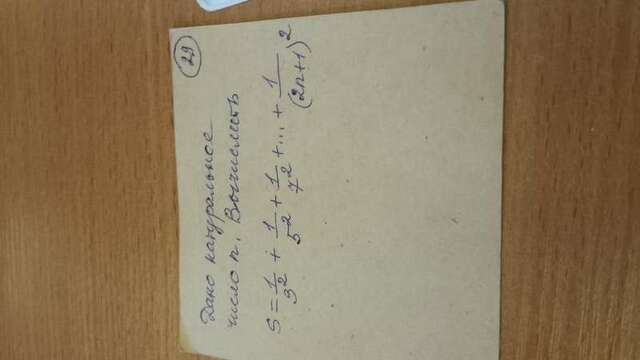 29
Дано натуральное
число n. Вычислить
S = 1/3² + 1/5² + 1/7² + ... + 1/(2n+1)²